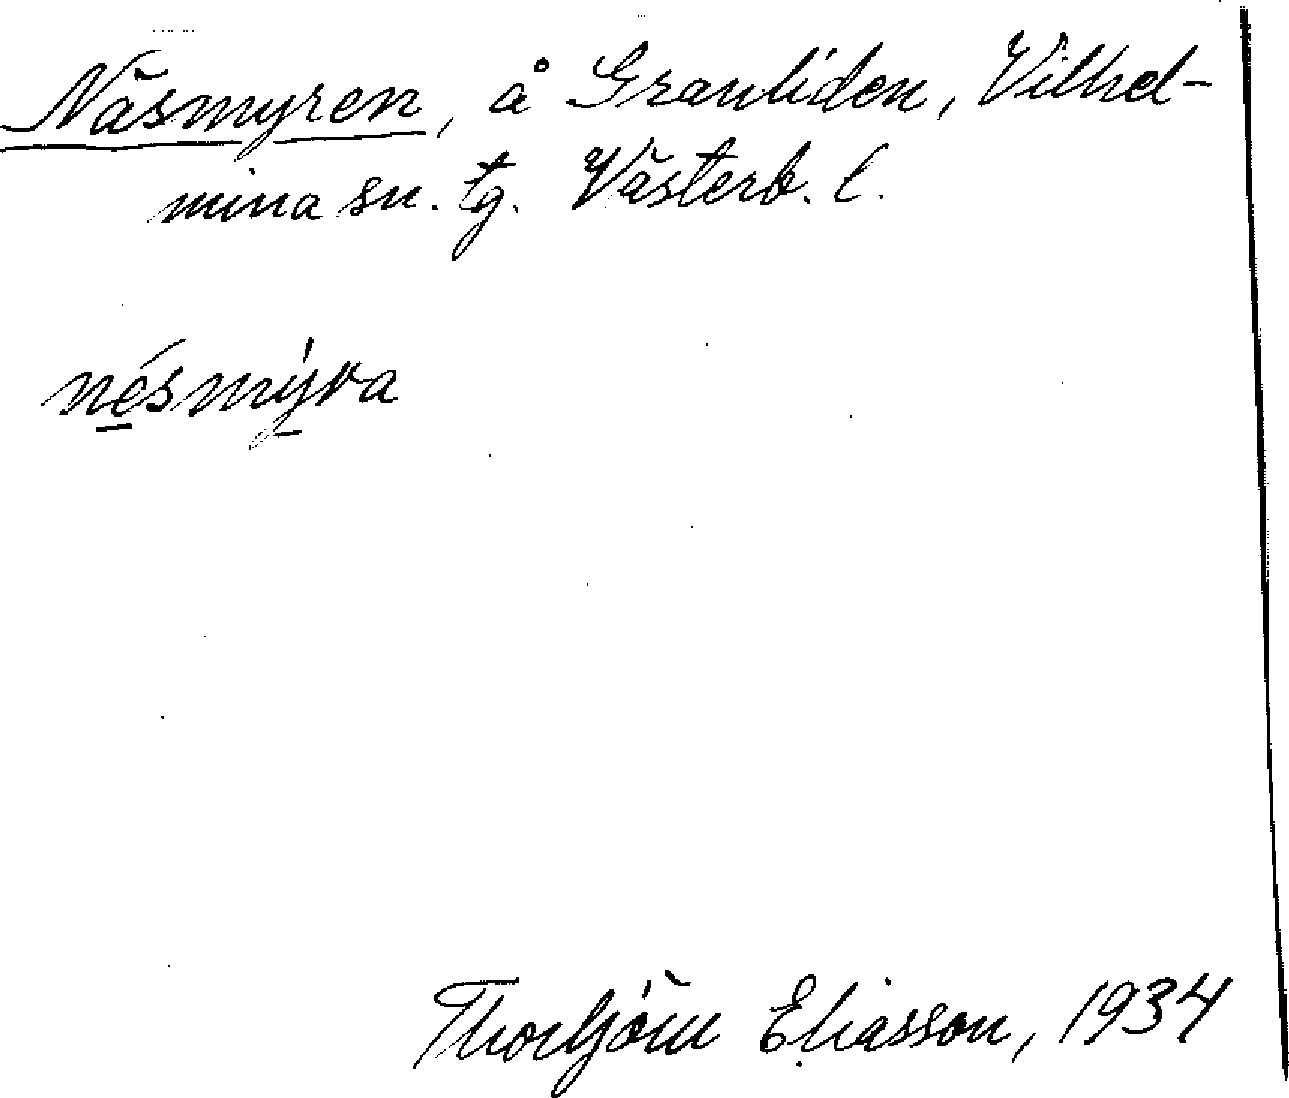 Näsmyren, å Granliden, Vilhel-
mina sn. tg. Västerb. l.
nésmýra
Thorbjörn Eliasson, 1934